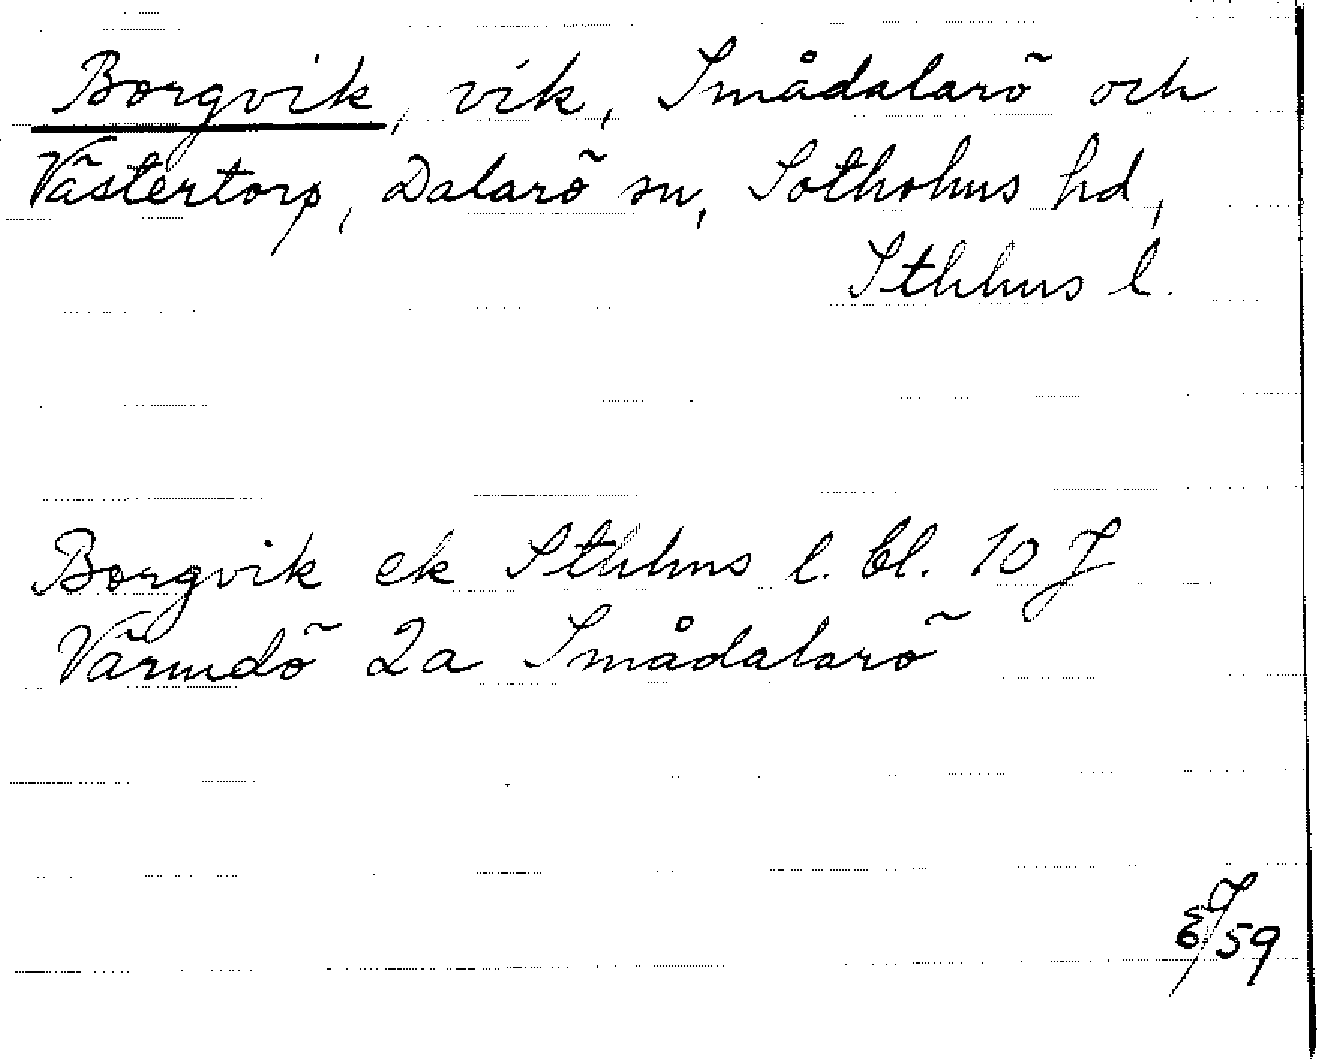 Borgvik, vik, Smådalarö och
Västertorp, Dalarö sn, Sotholms hd,
Sthlms l.
Borgvik ek Sthlms l. bl. 10 J
Värmdö 2a Smådalarö
59